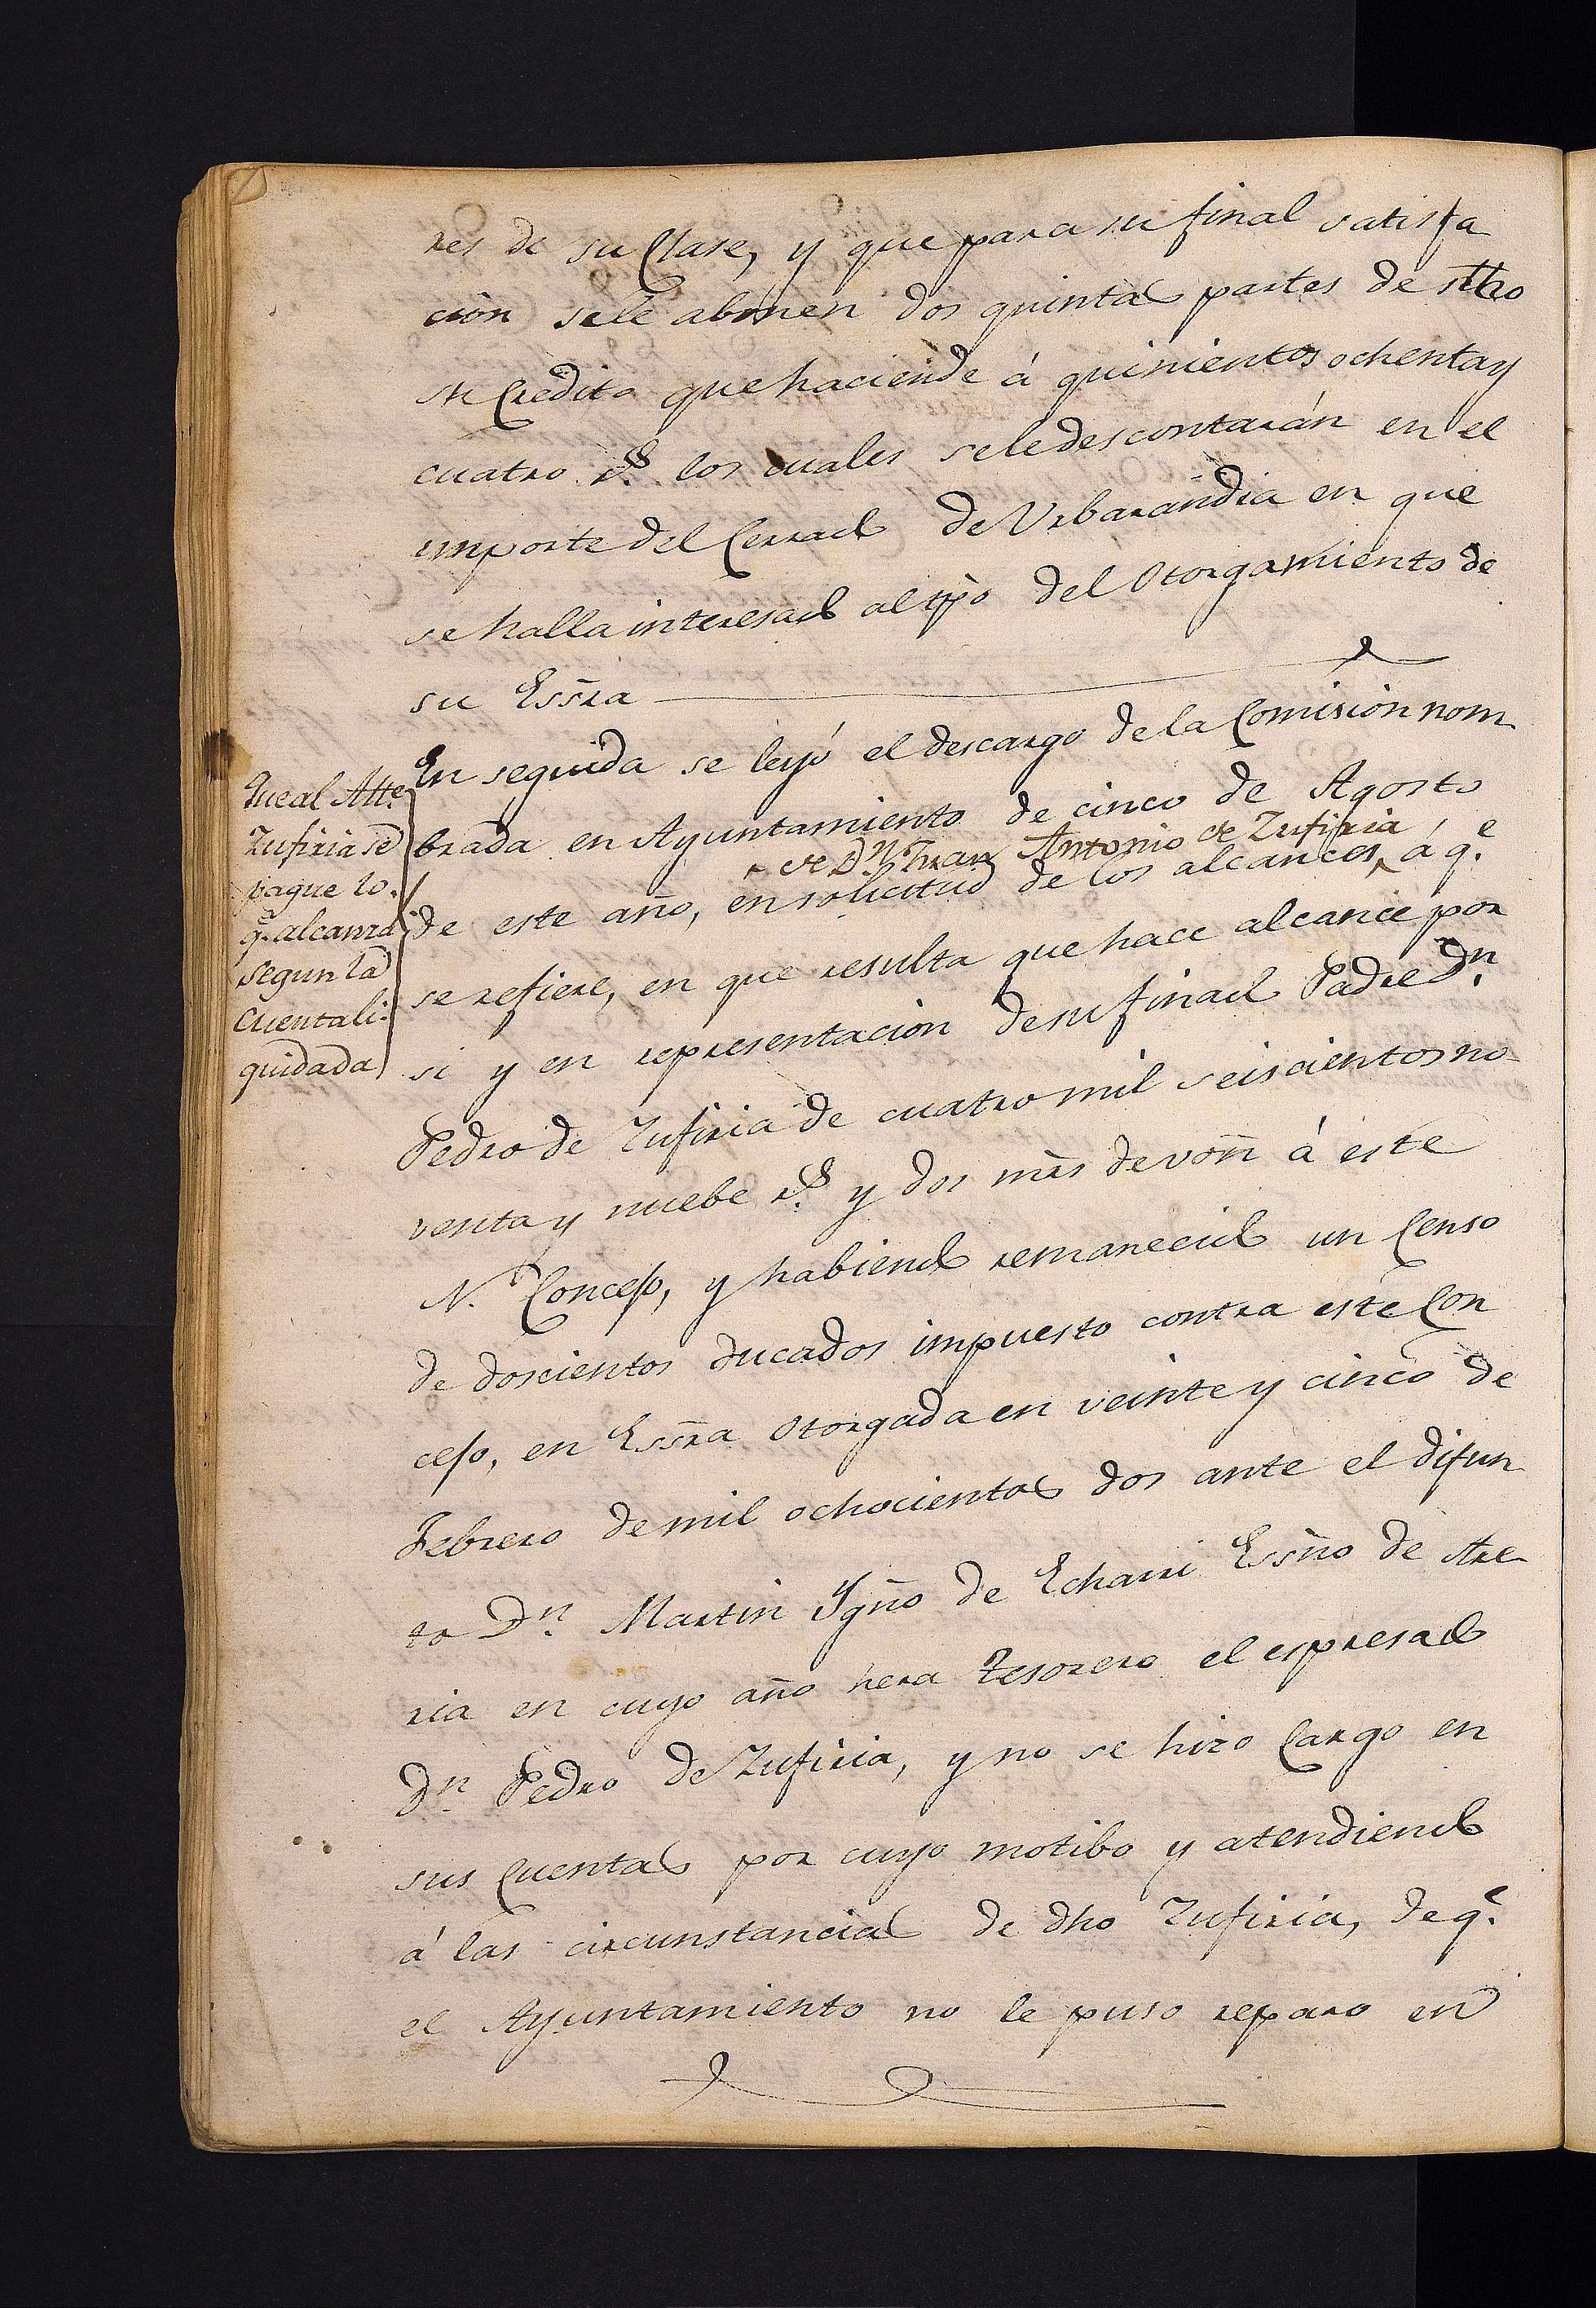 res de su Clase, y que para su final satisfa
cion sele abonen dos quintas partes de dho
su Credito que haciende á quinientos ochenta y
cuatro r.s los cuales sele descontarán en el
importe del Cerrado de Urbarandia en que
se halla interesado al tpo del Otorgamiento de
su Essra
En seguida se leyó el descargo de la Comision nom
brada en Ayuntamiento de cinco de Agosto
de Dn. Juan Antonio de Zufiria,
de este año, en solicitud de los alcances, á q.e
se refiere, en que resulta que hace alcance por
si y en representacion de su finado Padre Dn.
Pedro de Zufiria de cuatro mil seiscientos no-
venta y nuebe r.s y dos mrs de von á este
N. Concejo, y habiendo remanecido un Censo
de doscientos ducados impuesto contra este Con
cejo, en Essra Otorgada en veinte y cinco de
Febrero de mil ochocientos dos ante el difun
to Dn. Martin Ygno de Echarri Essno de Are
ria en cuyo año hera tesorero el espresado
Dn. Pedro de Zufiria, y no se hizo Cargo en
sus Cuentas por cuyo motibo y atendiendo
á las circunstancias de dho Zufiria, de q.e
el Ayuntamiento no le puso reparo en
Que al Atte.
Zufiria se
pague lo.
q. alcanza
segun la
Cuenta li-
quidada